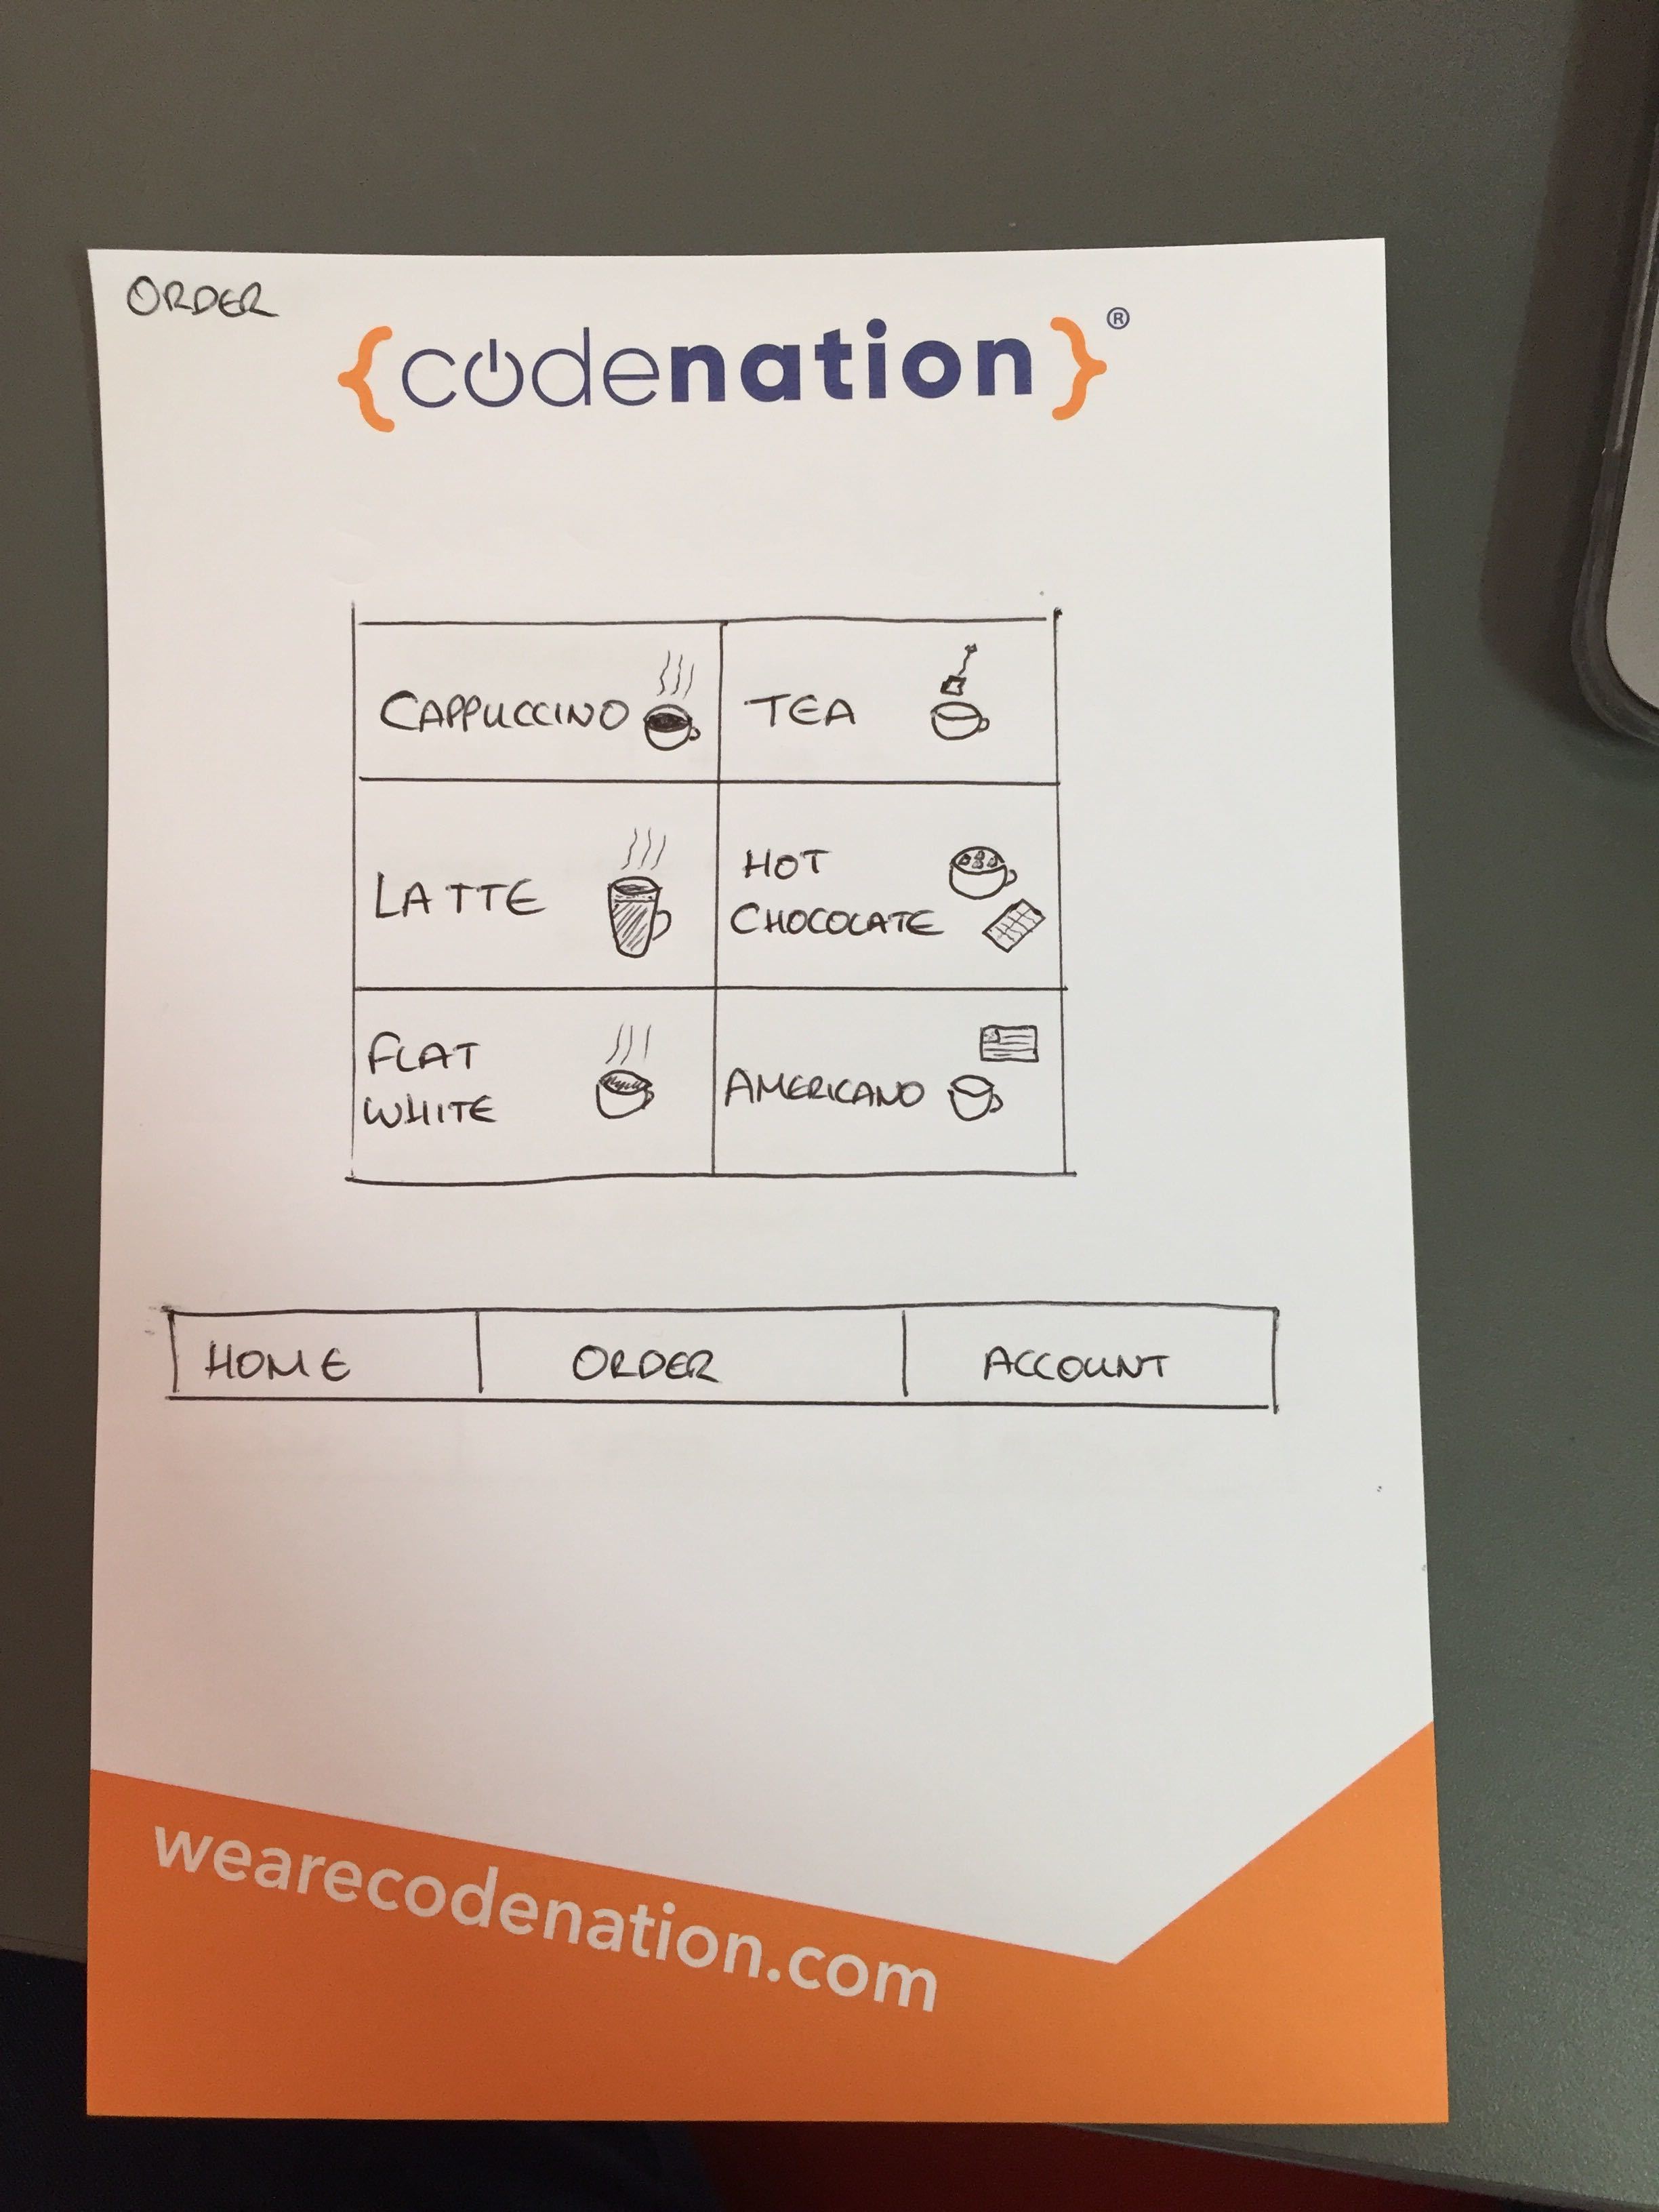 ORDER
{codenation}®
CAPPUCCINO
TEA
LATTE
HOT
CHOCOLATE
FLAT
WHITE
AMERICANO
HOME
ORDER
ACCOUNT
wearecodenation.com